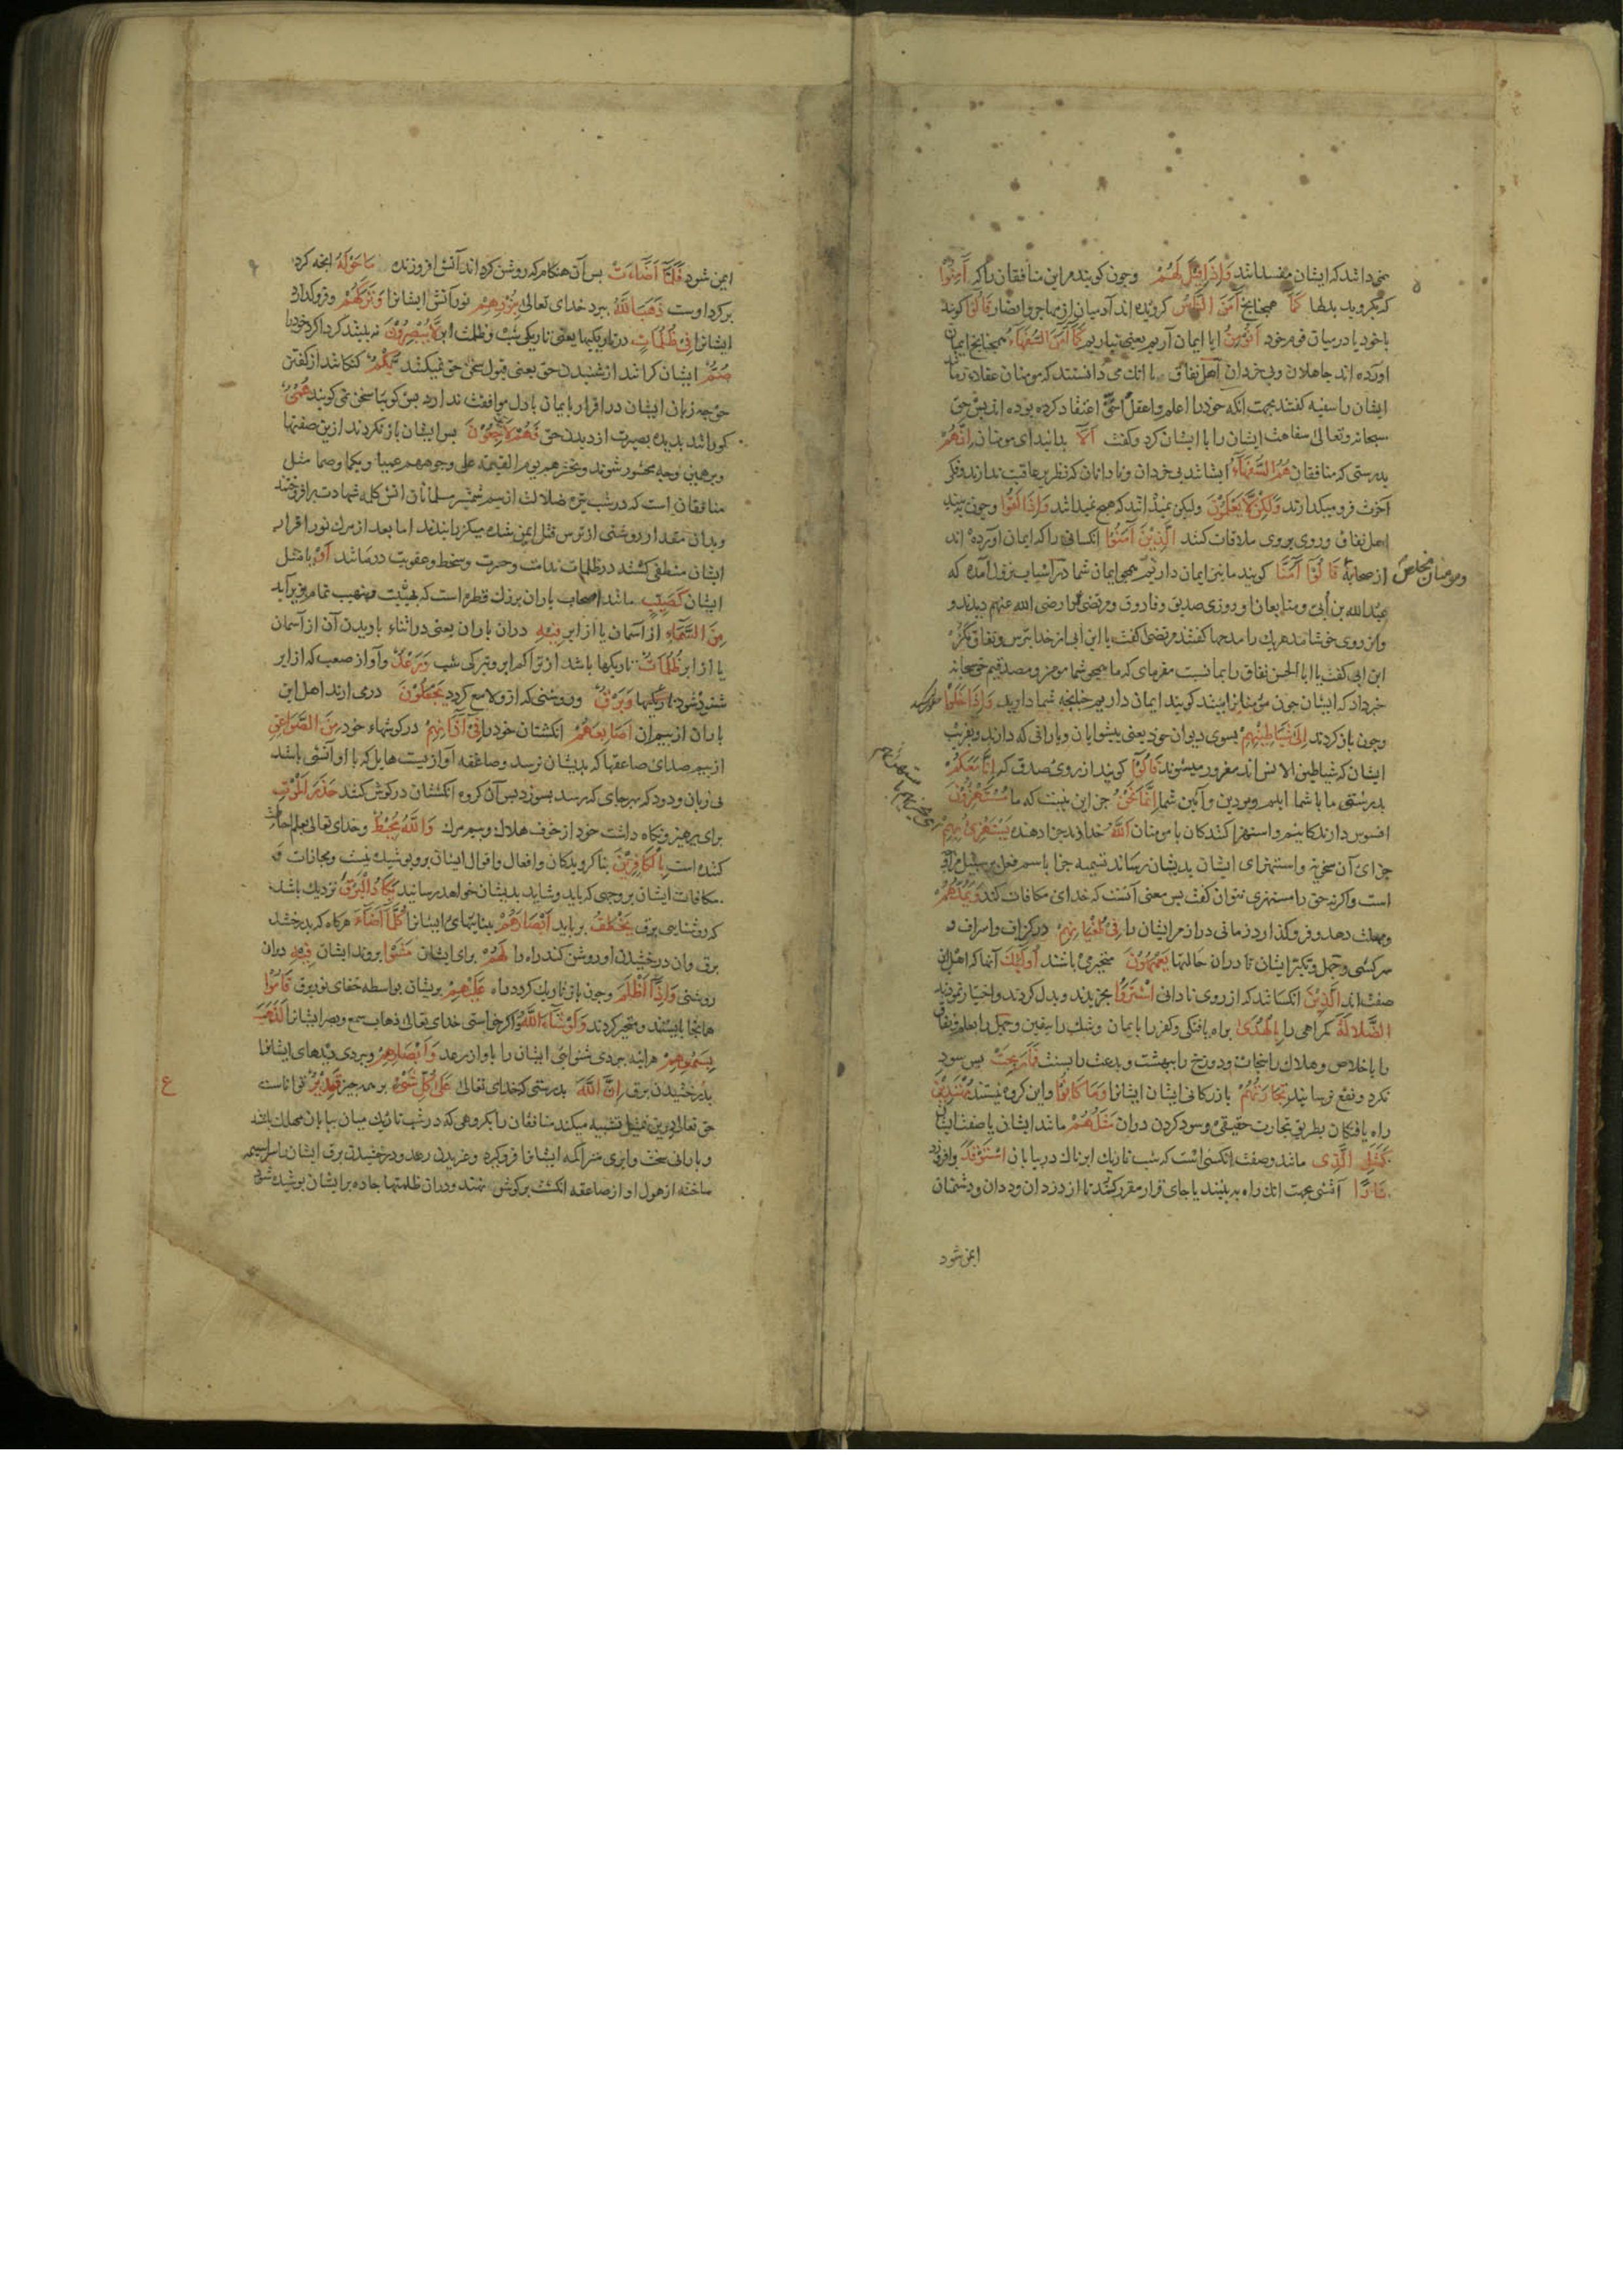 نمی دانند که ایشان مفسدانند وَاِذَا قِیْلَ لَهُمْ وچون کویند مر این منافقان را که آمِنُوا
که بکروید بدلها کَمَآ همچنانچ آمَنَ النَّاسُ کرویده اند آدمیان از مهاجر وانصار قَالُوٓا کویند
باخود یا درمیان قوم خود اَنُؤْمِنُ ایا ایمان آریم یعنی نیاریم کَمَآ آمَنَ السُّفَهَآءُ همچنانچ ایمان
اورده اند جاهلان وبی خردان اهل نفاق با انک می دانستند که مومنان عقلاء زمان
ایشان را سفیه کفتند بجهت انکه خود را اعلم واعقل اعتقاد کرده بوده اند پس حق
سبحانه وتعالی سفاهت ایشان را با ایشان کرد وکفت اَلَآ بدانید ای مومنان اِنَّهُمْ
بدرستی که منافقان هُمُ السُّفَهَآءُ ایشانند بی خردان ونادانان که نظر بر عاقبت ندارند وفکر
آخرت فرو میکذارند وَلٰکِنْ لَّا یَعْلَمُوْنَ ولیکن نمیدانند که هیچ نمیدانند وَاِذَا لَقُوا وچون به بینند
اهل نفاق وروی بروی ملاقات کنند الَّذِیْنَ آمَنُوْا انکسانی را که ایمان آورده اند
ومومنان مخلص از صحابه قَالُوْٓا آمَنَّا کویند ما نیز ایمان داریم همچو ایمان شما در اسباب نزول آمده که
عبدالله بن اُبی ومتابعان او روزی صدیق وفاروق ومرتضی را رضی الله عنهم دیدند و
از روی خوشامد هریک را مدحها کفتند مرتضی کفت یا ابن ابی از خدا بترس ونفاق مکن
ابن ابی کفت یا ابا الحسن نفاق را بما نسبت مفرمای که ما همچو شما مومن ومصدقیم حق سبحانه
خبر داد که ایشان چون مؤمنانرا بینند کویند ایمان داریم چنانچه شما دارید وَاِذَا خَلَوْا
وچون باز کردند اِلٰی شَیَاطِیْنِهِمْ بسوی دیوان خود یعنی پیشوایان ویارانی که دارند وبفریب
ایشان که شیاطین الانس اند مغرور میشوند قَالُوْٓا کویند از روی صدق که اِنَّا مَعَکُمْ
بدرستی ما با شما ایم وبر دین وآیین شما اِنَّمَا نَحْنُ جز این نیست که ما مُسْتَهْزِؤُنَ
افسوس دارندکانیم واستهزا کنندکان با مومنان اَللّٰهُ خداوند جزا دهنده یَسْتَهْزِیُٔ بِهِمْ
جزای آن سخریه واستهزای ایشان بدیشان رساند تسمیه جزا باسم فعل بر سبیل
است واکرنه حق را مستهزی نتوان کفت پس معنی آنست که خدای مکافات کند وَیَمُدُّهُمْ
ومهلت دهد وفرو کذارد زمانی دراز مر ایشان را فِیْ طُغْیَانِهِمْ در کزاف واسراف و
سرکشی وجهل وتکبر ایشان تا دران حالتها یَعْمَهُوْنَ متحیر می باشند اُولٰٓئِکَ آنها که اهل این
صفت اند الَّذِیْنَ انکسانند که از روی نادانی اشْتَرَوُا بخریدند وبدل کردند واختیار نمودند
الضَّلَالَةَ کمراهی را بِالْهُدٰی براه یافتکی وکفر را بایمان وشک را بیقین وجهل را بعلم ونفاق
را باخلاص وهلاک را بنجات ودوزخ را ببهشت وبدعت را بسنت فَمَا رَبِحَتْ پس سود
نکرد ونفع نرسانید تِجَارَتُهُمْ بازرکانی ایشان ایشانرا وَمَا کَانُوْا واین کروه نیستند مُهْتَدِیْنَ
راه یافتکان بطریق تجارت حقیقی وسود کردن دران مَثَلُهُمْ مانند ایشان یا صفت ایشان
کَمَثَلِ الَّذِی مانند وصفت انکسی است که شب تاریک ابرناک در بیابان اسْتَوْقَدَ وافروزد
نَارًا آتشی بجهت انک راه به بیند یا جای قرار مقرر کند تا از دزدان وددان ودشمنان
ایمن شود
ایمن شود فَلَمَّآ اَضَآءَتْ پس آن هنکام که روشن کرداند آتش افروزنده مَا حَوْلَهُ انچه کرد
بر کرد اوست ذَهَبَ اللّٰهُ ببرد خدای تعالی بِنُوْرِهِمْ نور آتش ایشانرا وَتَرَکَهُمْ وفرو کذارد
ایشانرا فِیْ ظُلُمَاتٍ در تاریکیها یعنی تاریکی شب وظلمت ابر لَّا یُبْصِرُوْنَ نه بینند کرداکرد خود را
صُمٌّ ایشان کرانند از شنیدن حق یعنی قبول سخن حق نمیکنند بُکْمٌ کنکانند از کفتن
حق چه زبان ایشان در اقرار بایمان با دل موافقت ندارد پس کویا سخن نمی کویند عُمْیٌ
کورانند بدیده بصیرت از دیدن حق فَهُمْ لَا یَرْجِعُوْنَ پس ایشان باز نکردند ازین صفتها
وبرهمین وجه محشور شوند ونحشرهم یوم القیمة علی وجوههم عمیا وبکما وصما مثل
منافقان است که در شب تیره ضلالت از بیم شمشیر مسلمانان آتش کلمه شهادت برافروختند
وبدان مقدار روشنی از ترس قتل ایمن شده میکذرانیدند اما بعد از مرک نور اقرار
ایشان منطفی کشته در ظلمات ندامت وحسرت وسخط وعقوبت درمانند اَوْ یا مثل
ایشان کَصَیِّبٍ مانند اصحاب باران بزرک قطره است که
مِنَ السَّمَآءِ از آسمان یا از ابر فِیْهِ دران باران یعنی در اثناء باریدن آن از آسمان
یا از ابر ظُلُمَاتٌ تاریکیها باشد از تراکم ابر وتیرکی شب وَّرَعْدٌ وآواز صعب که از ابر
شنوده شود وَّبَرْقٌ وروشنی که ازو لامع کردد یَجْعَلُوْنَ درمی ارند اهل این
باران از بیم آن اَصَابِعَهُمْ انکشتان خود را فِیْٓ آذَانِهِمْ در کوشهاء خود مِّنَ الصَّوَاعِقِ
از بیم صدای صاعقها که بدیشان نرسد وصاعقه آوازیست هایل که با او آتشی باشد
بی زبان ودود که بهر جای که رسد بسوزد پس آن کروه انکشتان در کوش کنند حَذَرَ الْمَوْتِ
برای پرهیز ونکاه داشت خود از خوف هلاک وبیم مرک وَاللّٰهُ مُحِیْطٌ وخدای تعالی بعلم احاطه
کننده است بِالْکَافِرِیْنَ بناکرویدکان وافعال واقوال ایشان برو پوشیده نیست ومجازات و
مکافات ایشان بر وجهی که باید وشاید بدیشان خواهد رسانید یَکَادُ الْبَرْقُ نزدیک باشد
که روشنایی برق یَخْطَفُ برباید اَبْصَارَهُمْ بیناییهای ایشانرا کُلَّمَآ اَضَآءَ هرکاه که بدرخشد
برق وان درخشیدن او روشن کند راه را لَهُمْ برای ایشان مَشَوْا بروند ایشان فِیْهِ دران
روشنی وَاِذَآ اَظْلَمَ وچون باز تاریک کردد راه عَلَیْهِمْ بریشان بواسطه خفای نور برق قَامُوْا
همانجا بایستند ومتحیر کردند وَلَوْ شَآءَ اللّٰهُ واکر خواستی خدای تعالی ذهاب سمع وبصر ایشانرا لَذَهَبَ
بِسَمْعِهِمْ هراینه ببردی شنوایی ایشان را باواز رعد وَاَبْصَارِهِمْ وببردی دیدهای ایشانرا
بدرخشیدن برق اِنَّ اللّٰهَ بدرستی که خدای تعالی عَلٰی کُلِّ شَیْءٍ بر همه چیز قَدِیْرٌ تواناست
حق تعالی درین تمثیل تشبیه میکند منافقان را بکروهی که در شب تاریک میان بیابان مهلک باشند
وبارانی سخت وابری متراکم ایشانرا فرو کیرد وغریدن رعد ودرخشیدن برق ایشان را سراسیمه
ساخته از هول او از صاعقه انکشت برکوش نهند ودران ظلمتها جاده برایشان پوشیده شود